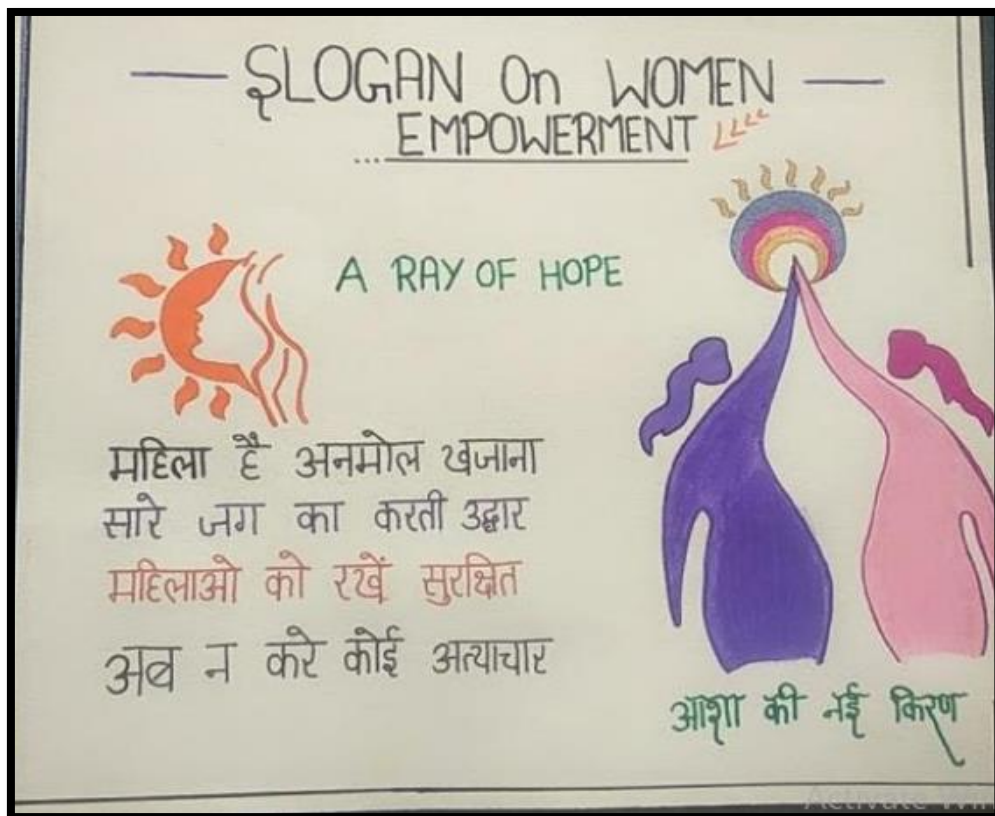 SLOGAN On WOMEN
EMPOWERMENT
A RAY OF HOPE
महिला है अनमोल खजाना
सारे जग का करती उद्धार
महिलाओ को रखें सुरक्षित
अब न करे कोई अत्याचार
आशा की नई किरण
Activate Win